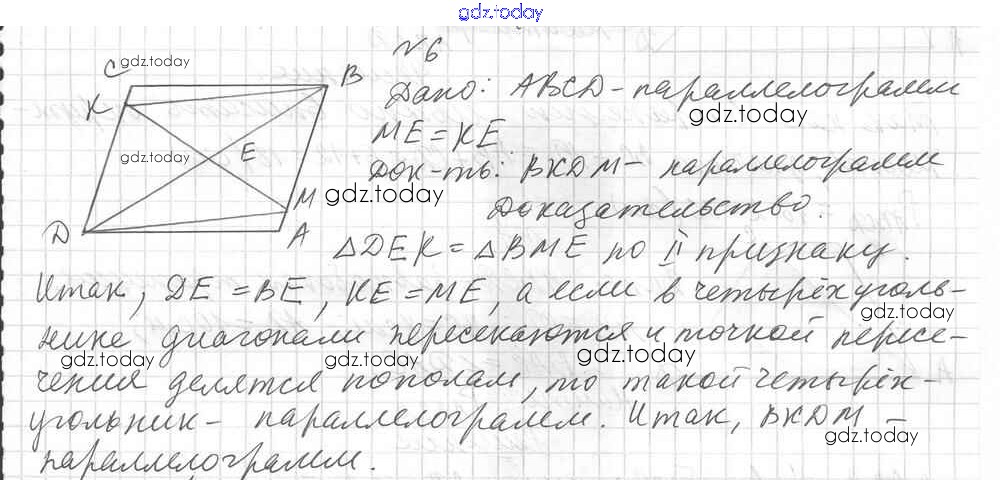 gdz.today
№6
C gdz.today B Дано: ABCD - параллелограмм
K gdz.today
ME = KE
gdz.today E Док-ть: BKDM - параллелограмм
M gdz.today Доказательство.
D A △DEK = △BME по II признаку.
Итак, DE = BE, KE = ME, а если в четырёхуголь-
gdz.today
нике диагонали пересекаются и точкой пересе-
gdz.today gdz.today gdz.today
чения делятся пополам, то такой четырёх-
угольник - параллелограмм. Итак, BKDM -
gdz.today
параллелограмм.